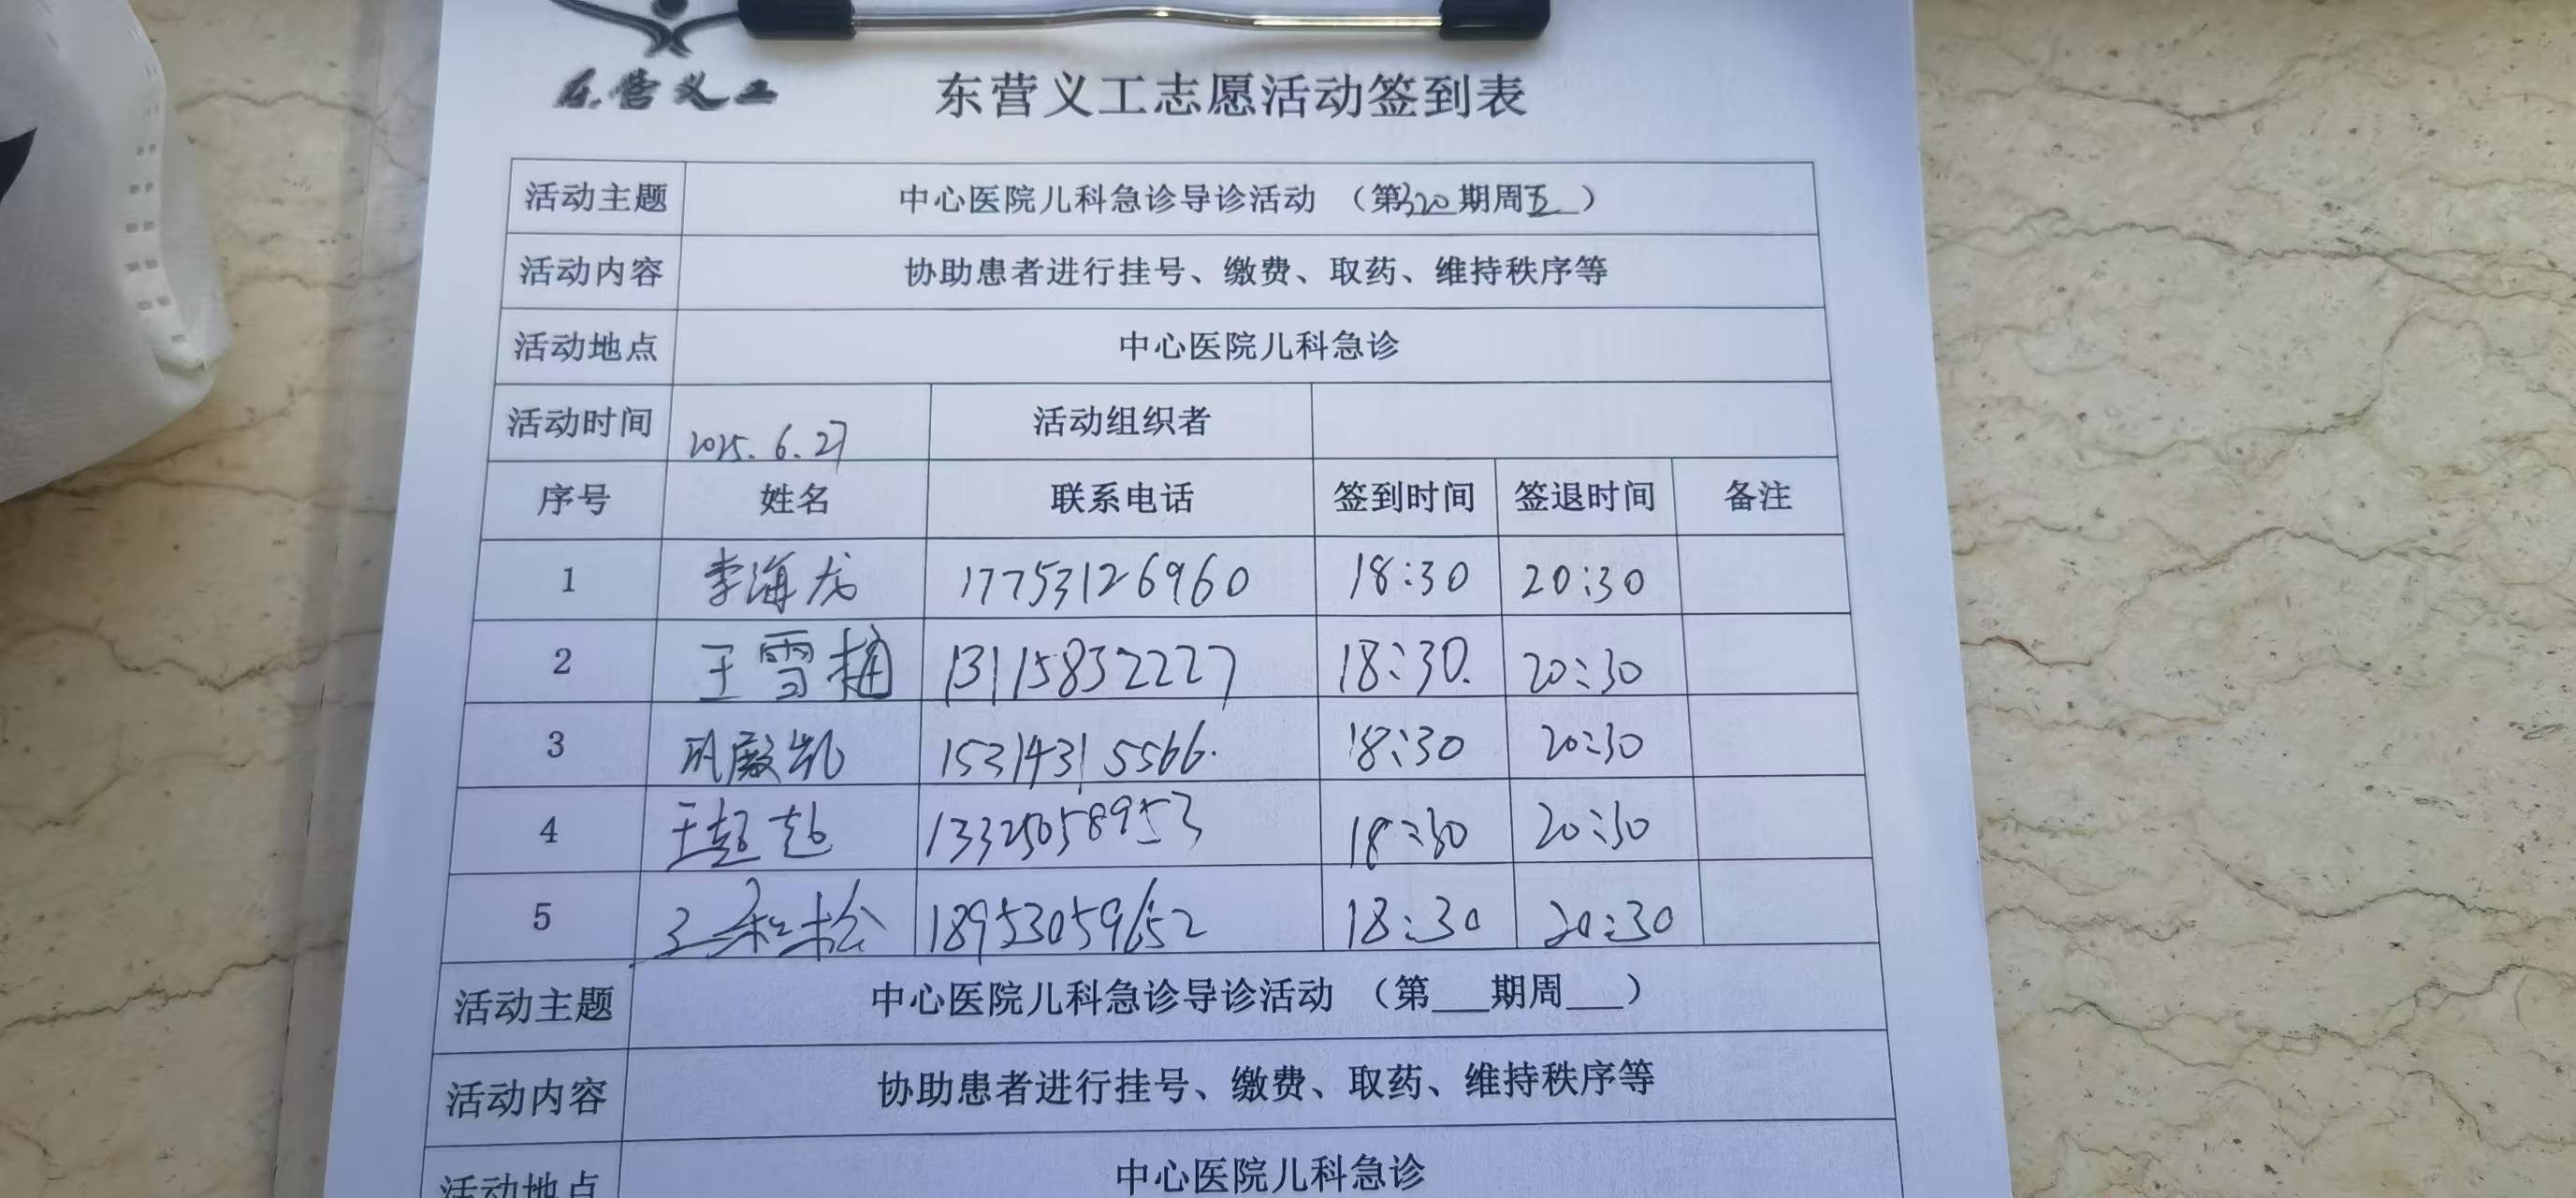 东营义工
东营义工志愿活动签到表
活动主题 中心医院儿科急诊导诊活动 （第320期周五）
活动内容 协助患者进行挂号、缴费、取药、维持秩序等
活动地点 中心医院儿科急诊
活动时间 2025.6.27 活动组织者
序号 姓名 联系电话 签到时间 签退时间 备注
1 李海龙 17753126960 18:30 20:30
2 王雪梅 13115832227 18:30. 20:30
3 巩殿凯 15314315566. 18:30 20:30
4 王超越 13325058953 18:30 20:30
5 王和松 18953059652 18:30 20:30
活动主题 中心医院儿科急诊导诊活动 （第___期周___）
活动内容 协助患者进行挂号、缴费、取药、维持秩序等
活动地点 中心医院儿科急诊